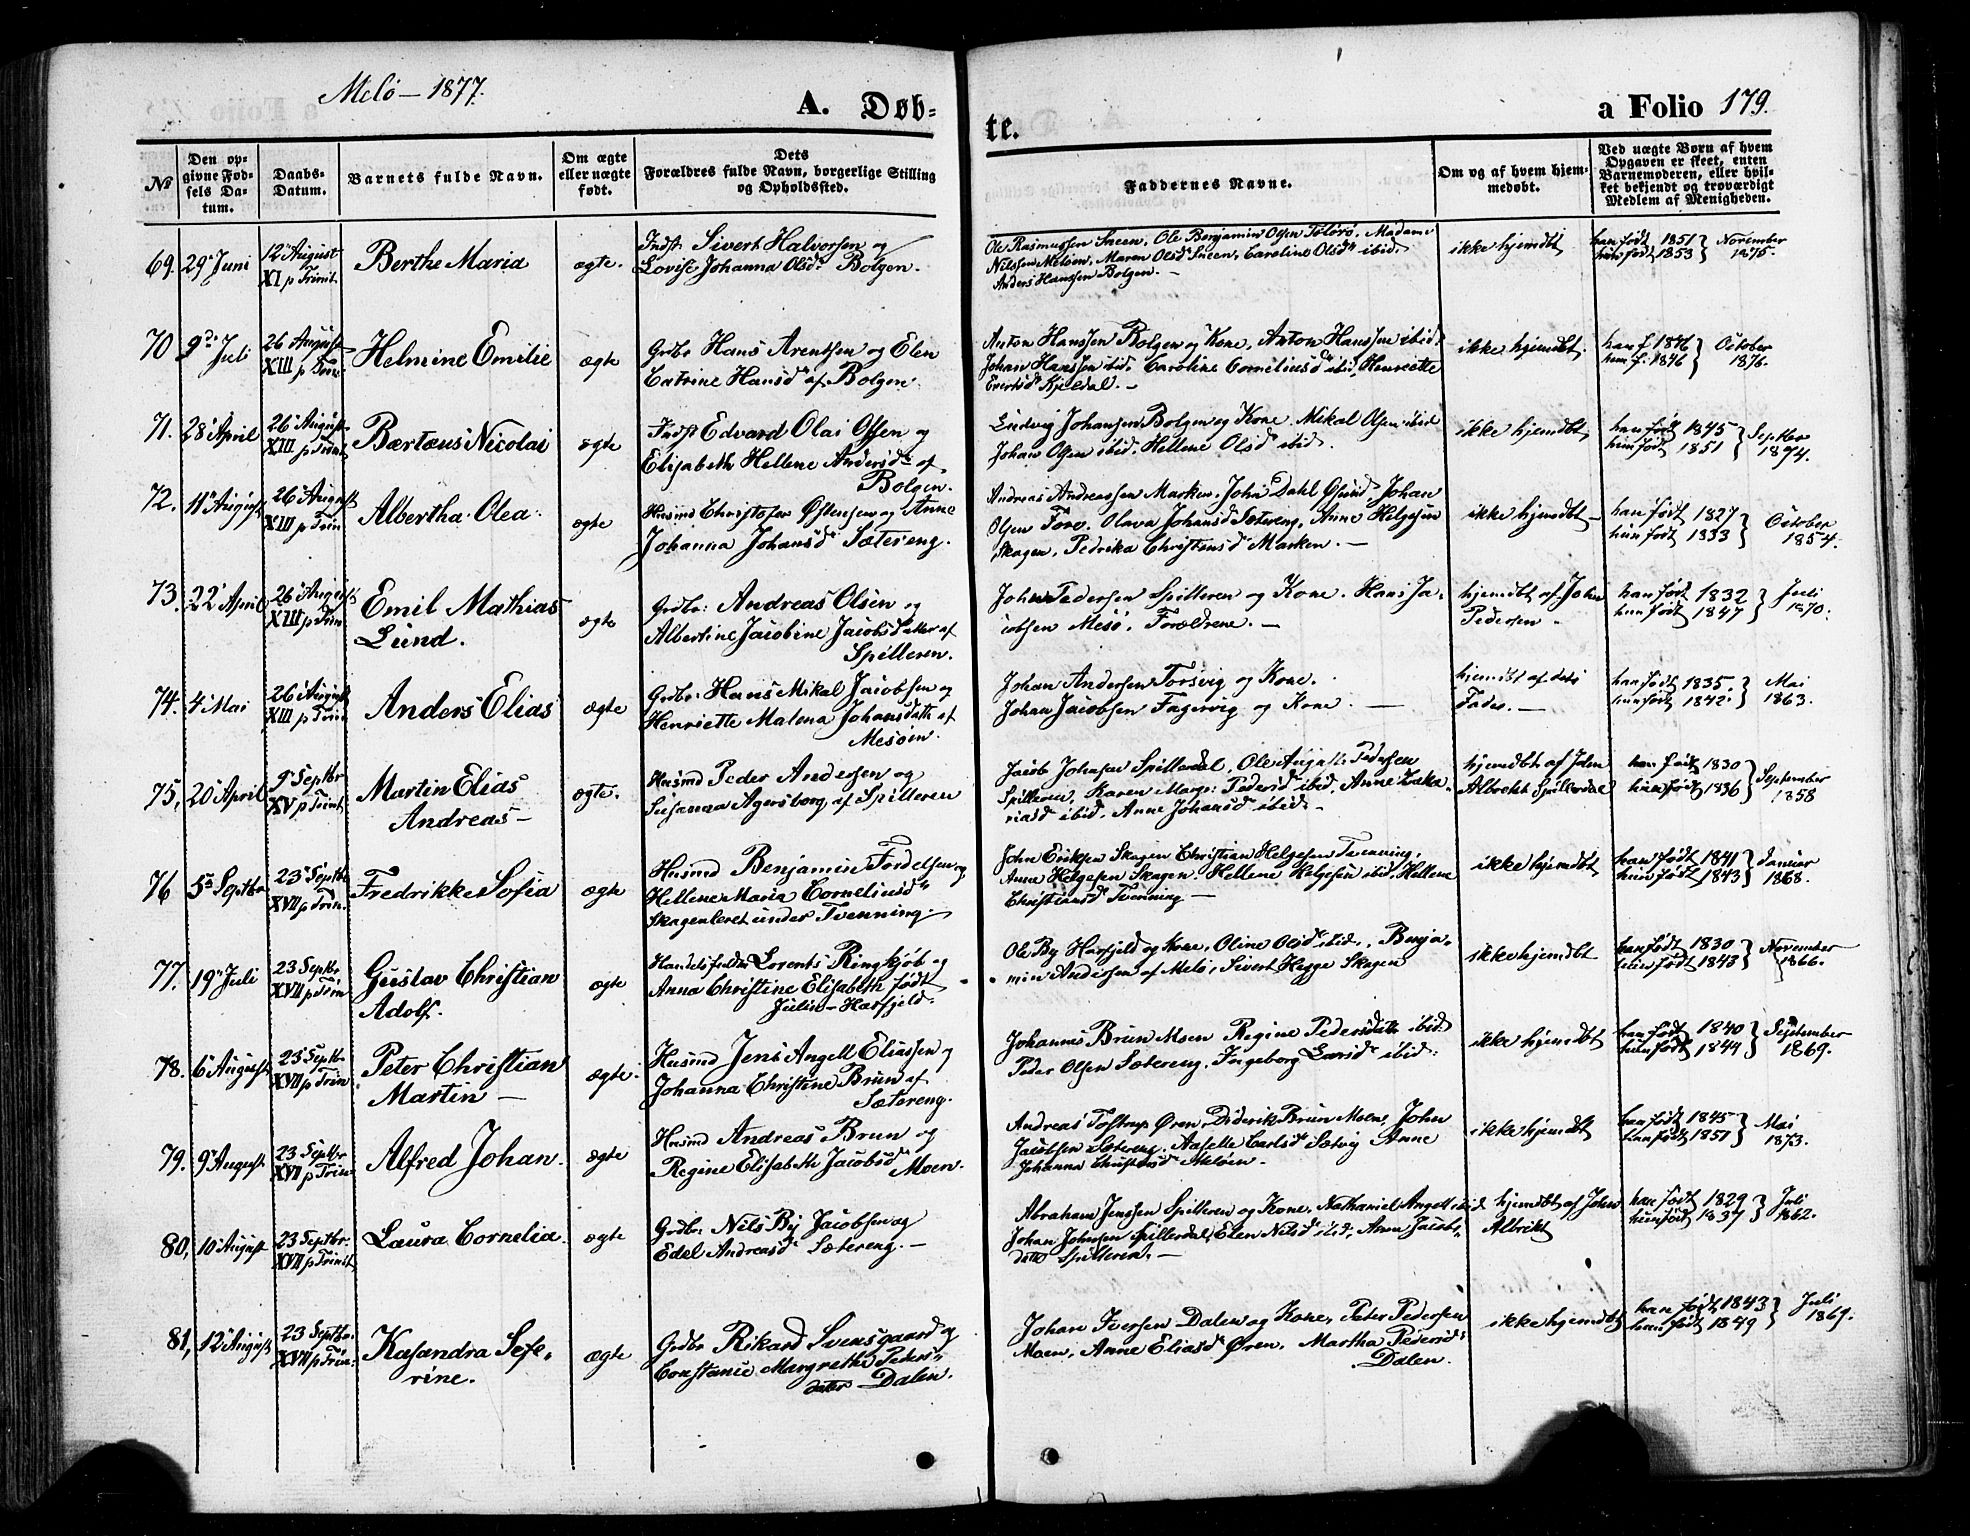 Melö – 1877.
A. Døb=
te.
a Folio 179.
No
Den op=
givne Fød=
sels Da=
tum.
Daabs=
Datum.
Barnets fulde Navn.
Om ægte
eller uægte
født.
Dets
Forældres fulde Navn, borgerlige Stilling
og Opholdssted.
Faddernes Navne.
Om og af hvem hjem=
medøbt.
Ved uægte Børn af hvem
Opgaven er skeet, enten
Barnemoderen, eller hvil=
ket bekjendt og troværdigt
Medlem af Menigheden.
69. 29 Juni
12 August
XI p Trinit.
Berthe Maria
ægte.
Indst Sivert Halvorsen og
Lovise Johanna Olsdr Bolgen.
Ole Rasmussen Sneen, Ole Benjamin Olsen, Madame
Nilssen Meløen, Maren Olsd Sneen, Caroline Olsdr ibid.
Anders Hanssen Bolgen. –
ikke hjemdbt
han født 1851 } November
hun født 1853 } 1875.
70 9de Juli
26 August
XIII p Trin.
Helmine Emilie
ægte
Grdbr Hans Arentsen og Elen
Catrine Hansd af Bolgen.
Anton Hanssen Bolgen og Kone, Anton Hanssen ibid.
Johan Hanssen ibid. Caroline Corneliusd ibid, Henriette
Evertsd Kjeldal. –
ikke hjemdbt.
han f. 1846 } October
hun f. 1846 } 1876.
71. 28 April
26 August
XIII p Trinit
Bærtæus Nicolai
ægte
Indst Edvard Olai Olsen og
Elisabeth Hellene Andersdr af
Bolgen.
Ludvig Johansen Bolgen og Kone. Mikal Olsen ibid
Johan Olsen ibid. Hellene Olsd ibid.
ikke hjemdbt
han født 1845 } Septbr
hun født 1851 } 1874.
72. 11 August
26 August
XIII p Trin
Albertha Olea.
ægte
Husmd Christofer Østensen og Anne
Johanna Johansd Sætereng.
Andreas Andreassen Marken, John Dahl Øsund, Johan
Olsen Fore. Olava Johansd Sætereng, Anne Helgesen
Skagen, Pedrika Christensd Marken. –
ikke hjemdbt –
han født 1827 } October
hun født 1833 } 1854.
73. 22 April
26 August
XIII p Trin
Emil Mathias
Lund.
ægte
Grdbr: Andreas Olsen og
Albertine Jacobine Jacobsdatter af
Spilleren.
John Pedersen Spilleren og Kone. Hans Ja=
cobsen Mesø, Forældrene. –
hjemdbt af John
Pedersen –
han født 1832 } Juli
hun født 1847 } 1870.
74. 4 Mai
26 August
XIII p Trin
Anders Elias
ægte
Grdbr: Hans Mikal Jacobsen og
Henriette Malena Johansdatt af
Mesøen.
Johan Andersen Torsvig og Kone.
Johan Jacobsen Fagervig og Kone. –
hjemdbt af dets
Fader. –
han født 1835. } Mai
hun født 1842. } 1863.
75, 20 April
9 Septbr
XV p Trinit,
Martin Elias
Andreas –
ægte.
Husmd Peder Andersen og
Susanna Agersborg af Spilleren
Jacob Johnsen Spillerdal, Ole August Pedersen
Spilleren, Karen Margr: Pedersd ibid, Anne Zaka=
riasd ibid. Anne Johansd ibid. –
hjemdbt af John
Albrekt Spillerdal
han født 1830 } September
hun født 1836 } 1858
76 5te Septbr
23 Septbr
XVII p Trin.
Fredrikke Sofia
ægte
Husmd Benjamin Fordelsen og
Hellene Maria Corneliusdr
Skagenleret under Tvenning.
John Eriksen Skagen Christian Helgesen Tvenning,
Anne Helgesen Skagen. Hellene Helgesen ibid, Hellene
Christiansd Tvenning –
ikke hjemdbt
han født 1841 } Januar
hun født 1843 } 1868.
77. 19 Juli
23 Septbr
XVII p Trin
Gustav Christian
Adolf.
ægte
Lorents Ringkjøb og
Anna Christine Elisabeth født
Julin – Harfjeld.
Ole By Harfjeld og Kone, Oline Olsd ibid., Benja=
min Andersen af Melø, Sivert Hegge Skagen
ikke hjemdbt
han født 1830 } November
hun født 1843 } 1866.
78. 6 August
23 Septbr
XVII p Trin
Peter Christian
Martin –
ægte.
Husmd Jens Angell Eliassen og
Johanna Christine Brun af
Sætereng.
Johannes Brun Moen Regine Pedersdatt ibid.
Peder Olsen Sætereng, Ingeborg Larsd ibid.
ikke hjemdbt
han født 1840 } September
hun født 1844 } 1869.
79. 9 August
23 Septbr
XVII p Trin
Alfred Johan.
ægte
Husmd Andreas Brun og
Regine Elisabeth Jacobsd Moen.
Andreas Tostrup Øren, Diderik Brun Moen, John
Jacobsen Sætereng. Aasette Carlsd Sætvig Anne
Johanna Meløen –
ikke hjemdbt
han født 1845 } Mai
hun født 1851 } 1873.
80, 10 August
23 Septbr.
XVII p Trinit,
Laura Cornelia.
ægte
Grdbr: Nils By Jacobsen og
Edel Andreasdr Sætereng. –
Abraham Jenssen Spilleren og Kone, Nathaniel Angell ibid
Johan Johnsen Spillerdal, Elen Nilsd ibid, Anne Jacobs=
datter Spilleren. –
hjemdbt af Johan
Albrikt
han født 1829 } Juli
hun født 1837 } 1862.
81, 12 August
23 Septbr.
XVII p Trin.
Kasandra Sefe=
rine.
ægte
Grdbr Rikard Svensgaard og
Constanse Margrethe Peders=
datter Dalen.
Johan Iversen Dalen og Kone, Peter Pedersen
Moen, Anne Eliasd Øren, Martha Pedersd
Dalen.
ikke hjemdbt
han født 1843 } Juli
hun født 1849 } 1869.